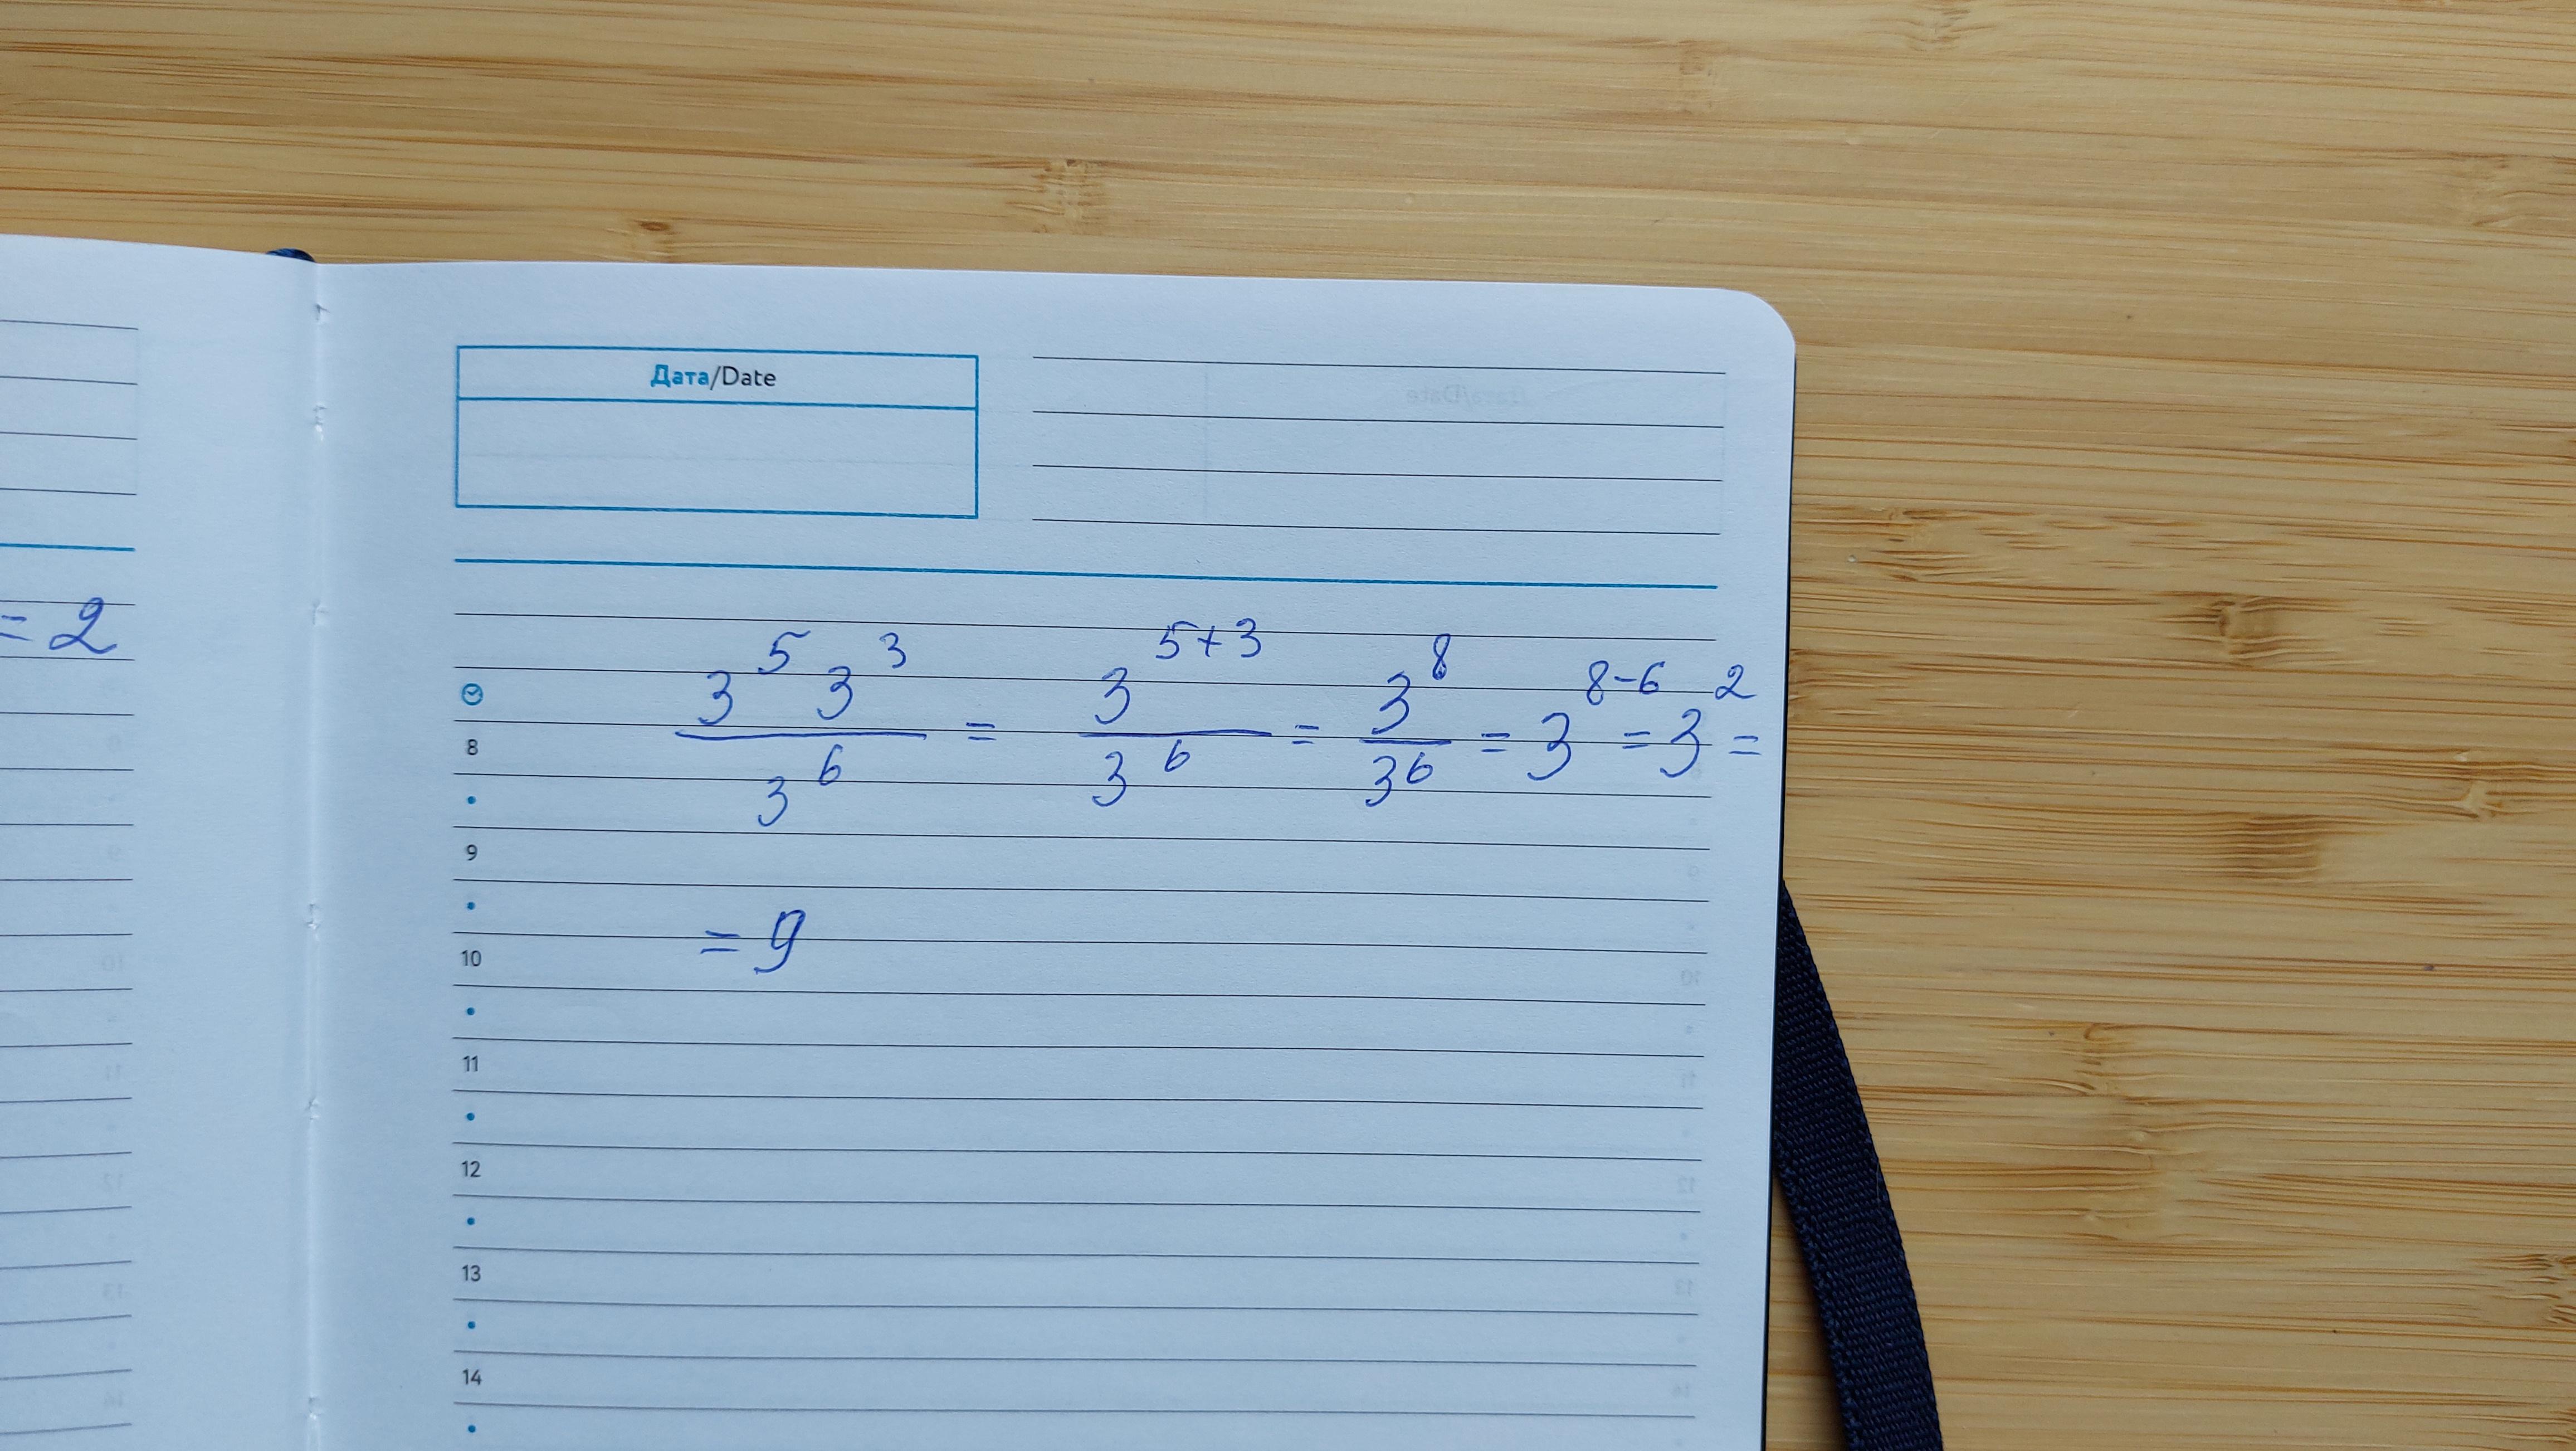 = 2
Дата/Date
3⁵ 3³ / 3⁶ = 3⁵⁺³ / 3⁶ = 3⁸ / 3⁶ = 3⁸⁻⁶ = 3² =
8
9
= 9
10
11
12
13
14